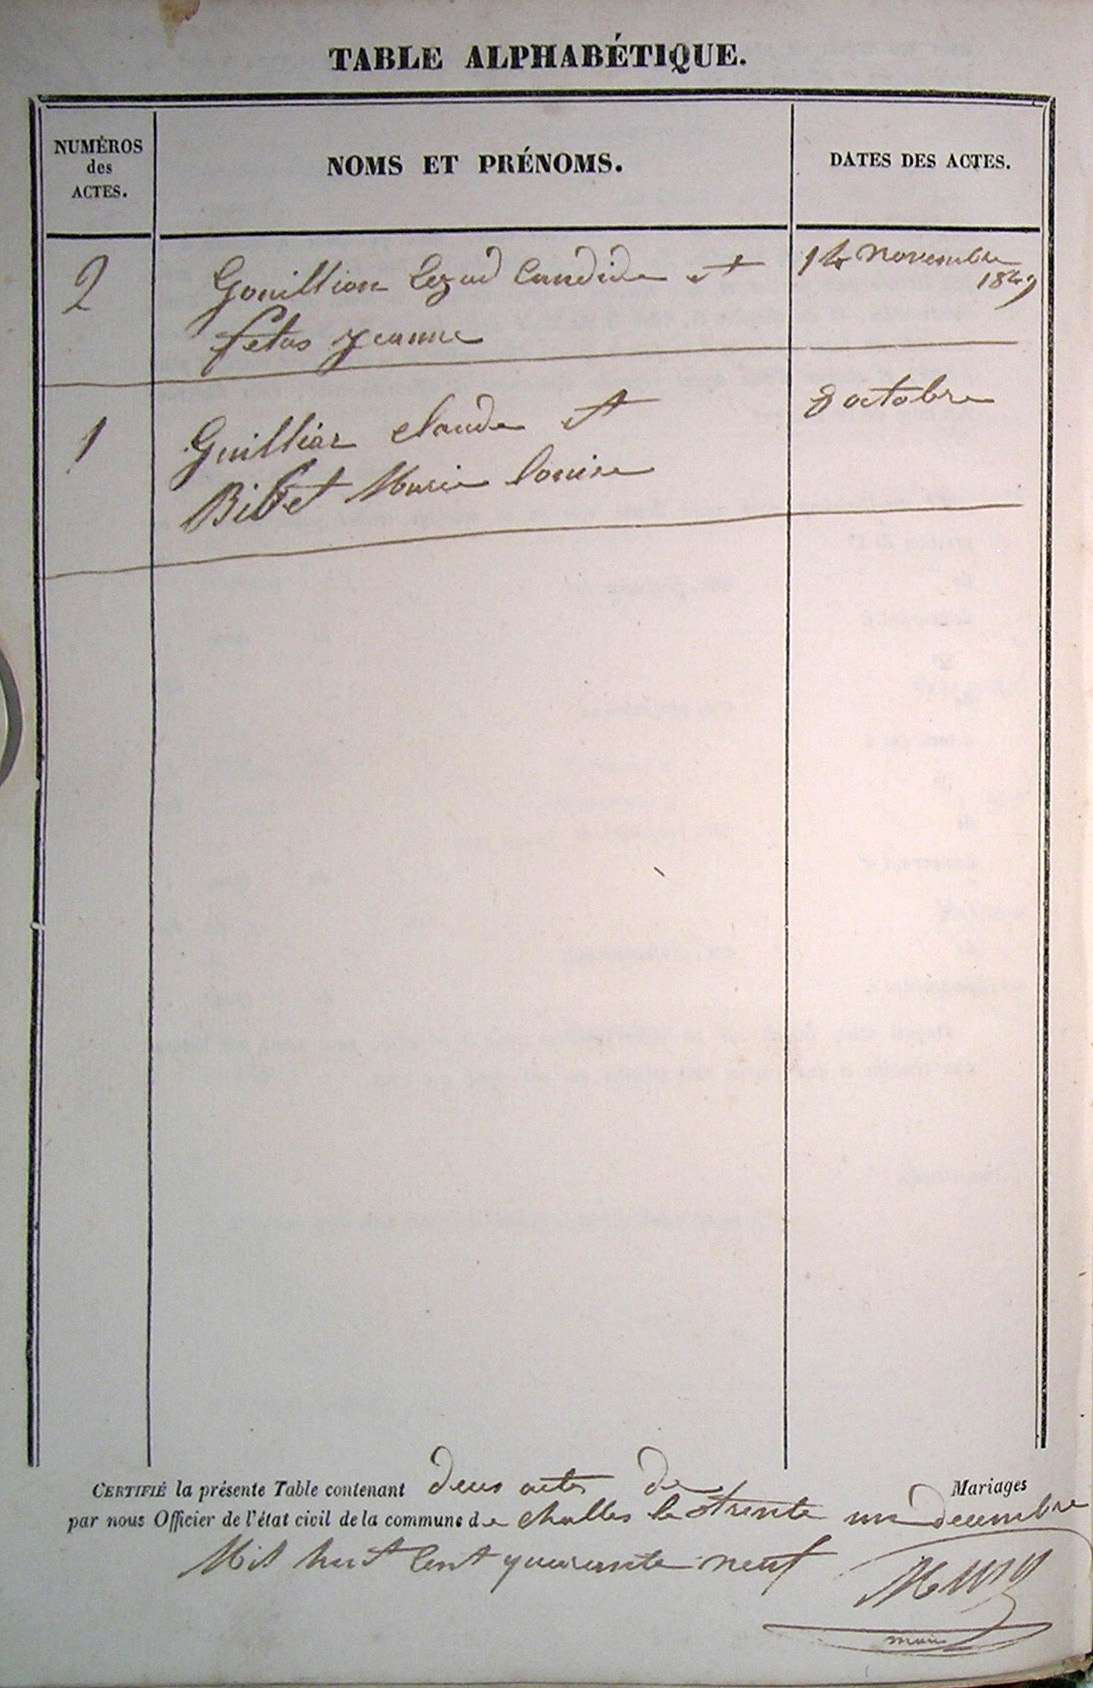 TABLE ALPHABÉTIQUE.
NUMÉROS
des
ACTES.
NOMS ET PRÉNOMS.
DATES DES ACTES.
2
Gouillion Candide et
fetas jeanne
14 novembre
1849
1
Guillier claude et
Bibet Marie louise
8 octobre
CERTIFIÉ la présente Table contenant deux actes de Mariages
par nous Officier de l'état civil de la commune de challes le trente un decembre
Mil huit Cent quarante neuf
maire